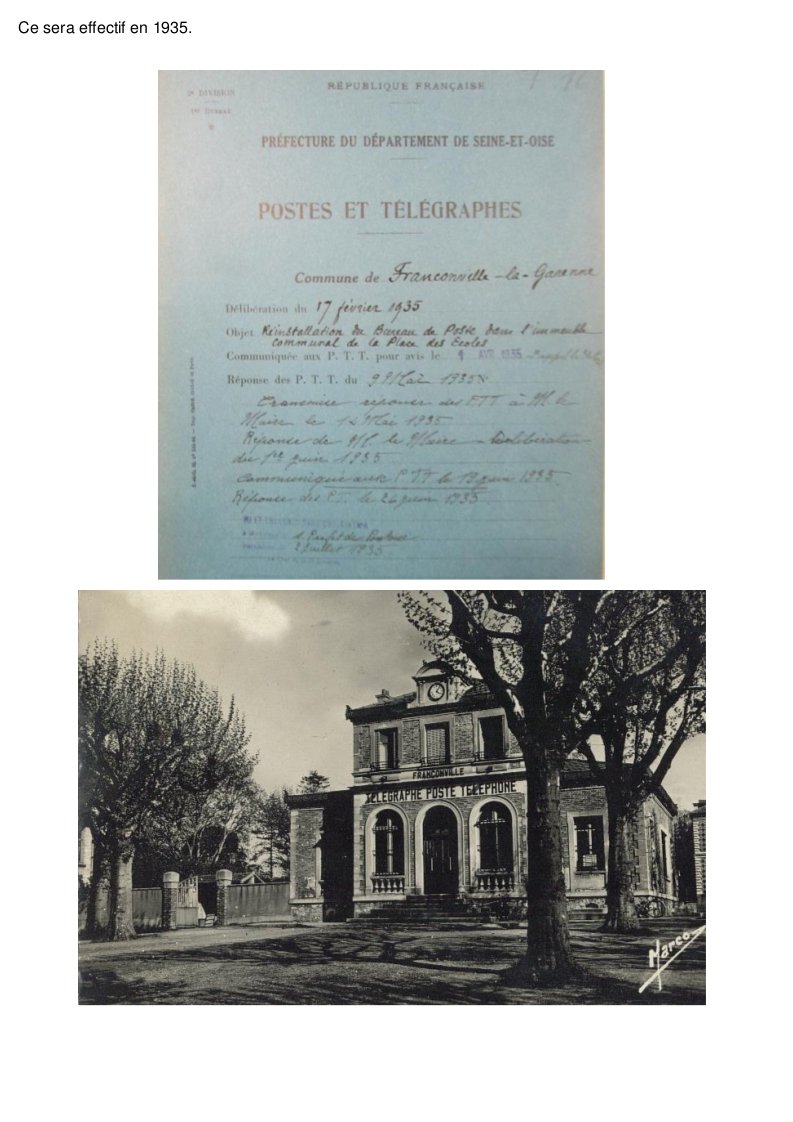 Ce sera effectif en 1935.
RÉPUBLIQUE FRANÇAISE
2e DIVISION
1er BUREAU
PRÉFECTURE DU DÉPARTEMENT DE SEINE-ET-OISE
POSTES ET TÉLÉGRAPHES
Commune de Franconville-la-Garenne
Délibération du 17 février 1935
Objet Réinstallation du Bureau de Poste dans l'immeuble
communal de la Place des Ecoles
Communiquée aux P. T. T. pour avis le AVR 1935
Réponse des P. T. T. du 9 Mai 1935 No
Transmise réponse des PTT à M. le
Maire le 14 Mai 1935
Réponse de M. le Maire - Délibération
du 1er juin 1935
Communiqué aux PTT le 19 juin 1935
Réponse des P.T. le 26 juin 1935
2 juillet 1935
FRANCONVILLE
TÉLÉGRAPHE POSTE TÉLÉPHONE
Marco